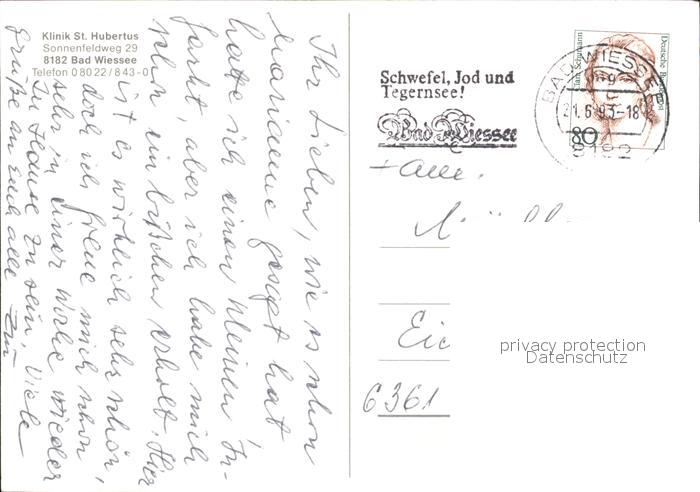 Klinik St. Hubertus
Sonnenfeldweg 29
8182 Bad Wiessee
Telefon 0 80 22 / 8 43-0
Ihr Lieben, wie es schon
Marianne gesagt hat
hatte ich einen kleinen In-
farkt, aber ich habe mich
schon ein bißchen erholt. Hier
ist es wirklich sehr schön,
doch ich freue mich schon
sehr in einer Woche wieder
zu Hause zu sein. Viele
Grüße an Euch alle
Schwefel, Jod und
Tegernsee!
Bad Wiessee
BAD WIESSEE
21.6.93-18
8182
Deutsche Bundespost
Clara Schumann
80
+ alle.
Eic
6361
privacy protection
Datenschutz